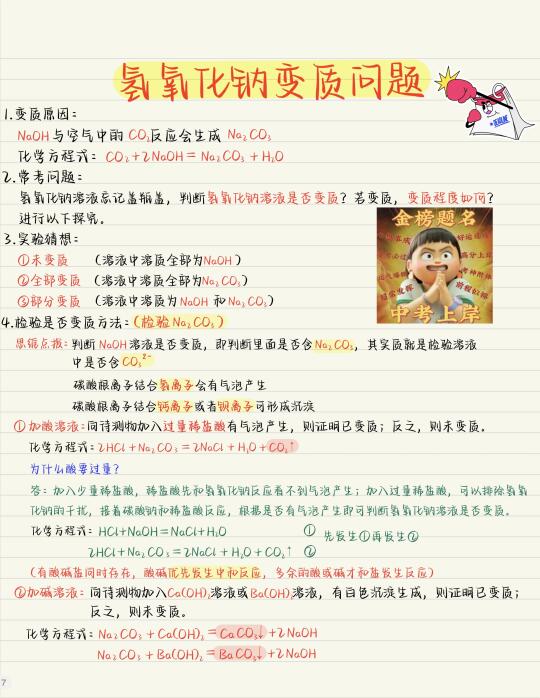 氢氧化钠变质问题
1.变质原因：
NaOH与空气中的CO₂反应会生成 Na₂CO₃
化学方程式：CO₂+2NaOH=Na₂CO₃+H₂O
2.常考问题：
氢氧化钠溶液忘记盖瓶盖，判断氢氧化钠溶液是否变质？若变质，变质程度如何？
进行以下探究。
金榜题名
中考上岸
3.实验猜想：
①未变质 （溶液中溶质全部为NaOH）
②全部变质 （溶液中溶质全部为Na₂CO₃）
③部分变质 （溶液中溶质为NaOH和Na₂CO₃）
4.检验是否变质方法：（检验Na₂CO₃）
思路点拨：判断NaOH溶液是否变质，即判断里面是否含Na₂CO₃，其实质就是检验溶液
中是否含CO₃²⁻
碳酸根离子结合氢离子会有气泡产生
碳酸根离子结合钙离子或者钡离子可形成沉淀
①加酸溶液：向待测物加入过量稀盐酸有气泡产生，则证明已变质；反之，则未变质。
化学方程式：2HCl+Na₂CO₃=2NaCl+H₂O+CO₂↑
为什么酸要过量？
答：加入少量稀盐酸，稀盐酸先和氢氧化钠反应看不到气泡产生；加入过量稀盐酸，可以排除氢氧
化钠的干扰，接着碳酸钠和稀盐酸反应，根据是否有气泡产生即可判断氢氧化钠溶液是否变质。
化学方程式：HCl+NaOH=NaCl+H₂O ① 先发生①再发生②
2HCl+Na₂CO₃=2NaCl+H₂O+CO₂↑ ②
（有酸碱盐同时存在，酸碱优先发生中和反应，多余的酸或碱才和盐发生反应）
②加碱溶液：向待测物加入Ca(OH)₂溶液或Ba(OH)₂溶液，有白色沉淀生成，则证明已变质；
反之，则未变质。
化学方程式：Na₂CO₃+Ca(OH)₂=CaCO₃↓+2NaOH
Na₂CO₃+Ba(OH)₂=BaCO₃↓+2NaOH
7